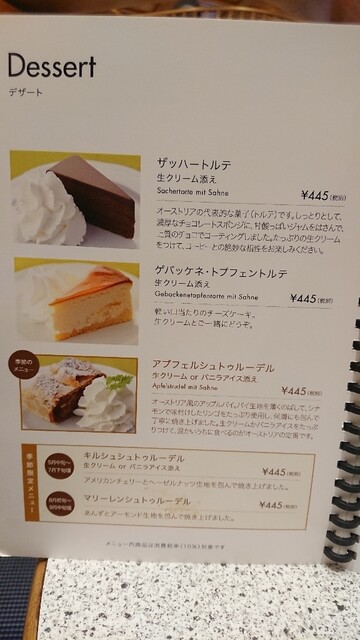 Dessert
デザート
ザッハートルテ
生クリーム添え
Sachertorte mit Sahne
¥445(税別)
オーストリアの代表的な菓子(トルテ)です。しっとりとして、
濃厚なチョコレートスポンジに、甘酸っぱいジャムをはさんで、
上質のチョコでコーティングしました。たっぷりの生クリーム
をつけて、コーヒーとの絶妙な相性をお楽しみください。
ゲバッケネ・トプフェントルテ
生クリーム添え
Gebackenetopfentorte mit Sahne
¥445(税別)
軽い口当たりのチーズケーキ。
生クリームとご一緒にどうぞ。
季節の
メニュー
アプフェルシュトゥルーデル
生クリーム or バニラアイス添え
Apfelstrudel mit Sahne
¥445(税別)
オーストリア風のアップルパイ。パイ生地を薄くのばして、シナ
モンで味付けしたリンゴをたっぷり使用し、何層にも包んで
丁寧に焼き上げました。生クリームかバニラアイスをたっぷ
りつけて、温かいうちに食べるのがオーストリアの定番です。
季節限定メニュー
キルシュシュトゥルーデル
生クリーム or バニラアイス添え
¥445(税別)
アメリカンチェリーとヘーゼルナッツ生地を包んで焼き上げました。
マリーレンシュトゥルーデル
¥445(税別)
あんずとアーモンド生地を包んで焼き上げました。
メニュー内商品は消費税率(10%)対象です